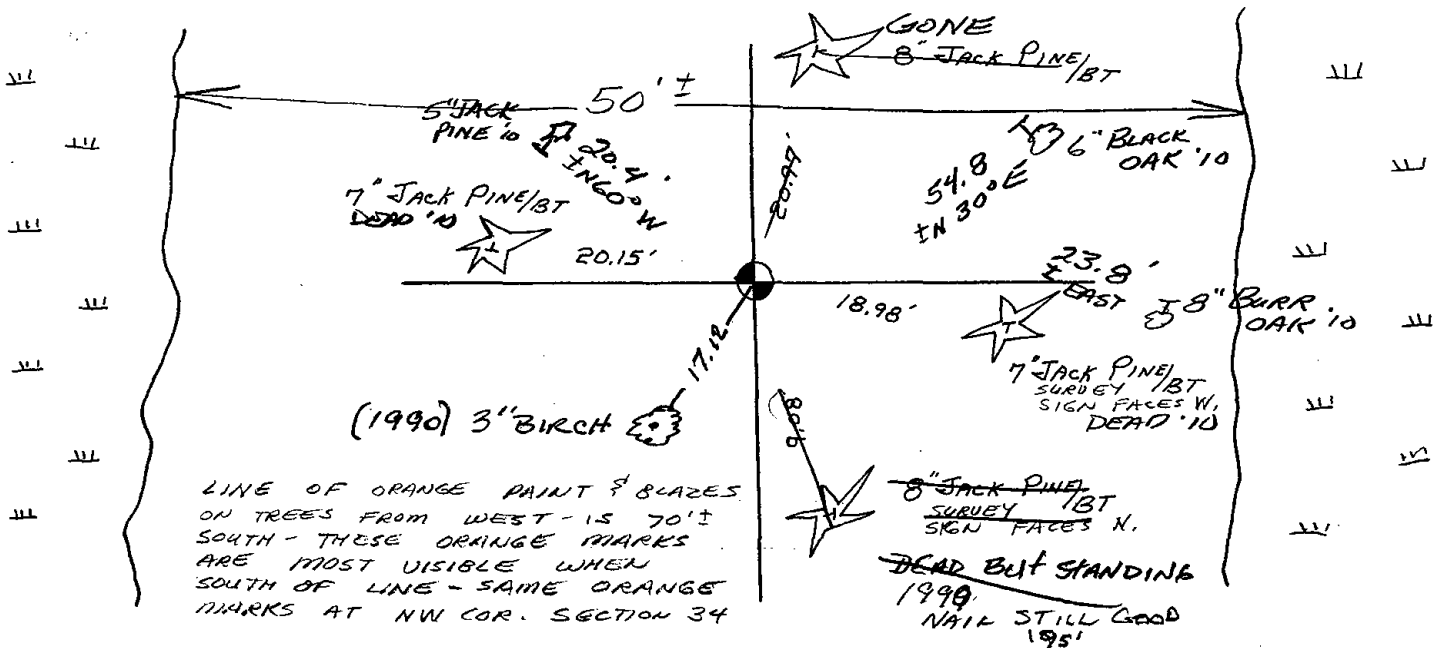 GONE
8" JACK PINE/BT
50'±
5" JACK
PINE '10
20.4'
±N60°W
20.97'
54.8
±N 30° E
6" BLACK
OAK '10
7" JACK PINE/BT
DEAD '10
20.15'
18.98'
23.8'
± EAST
8" BURR
OAK '10
7" JACK PINE/BT
SURVEY
SIGN FACES W.
DEAD '10
17.12
(1990) 3" BIRCH
8" JACK PINE/BT
SURVEY
SIGN FACES N.
DEAD BUT STANDING
NAIL STILL GOOD
LINE OF ORANGE PAINT & BLAZES
ON TREES FROM WEST - IS 70'±
SOUTH - THESE ORANGE MARKS
ARE MOST VISIBLE WHEN
SOUTH OF LINE - SAME ORANGE
MARKS AT NW COR. SECTION 34